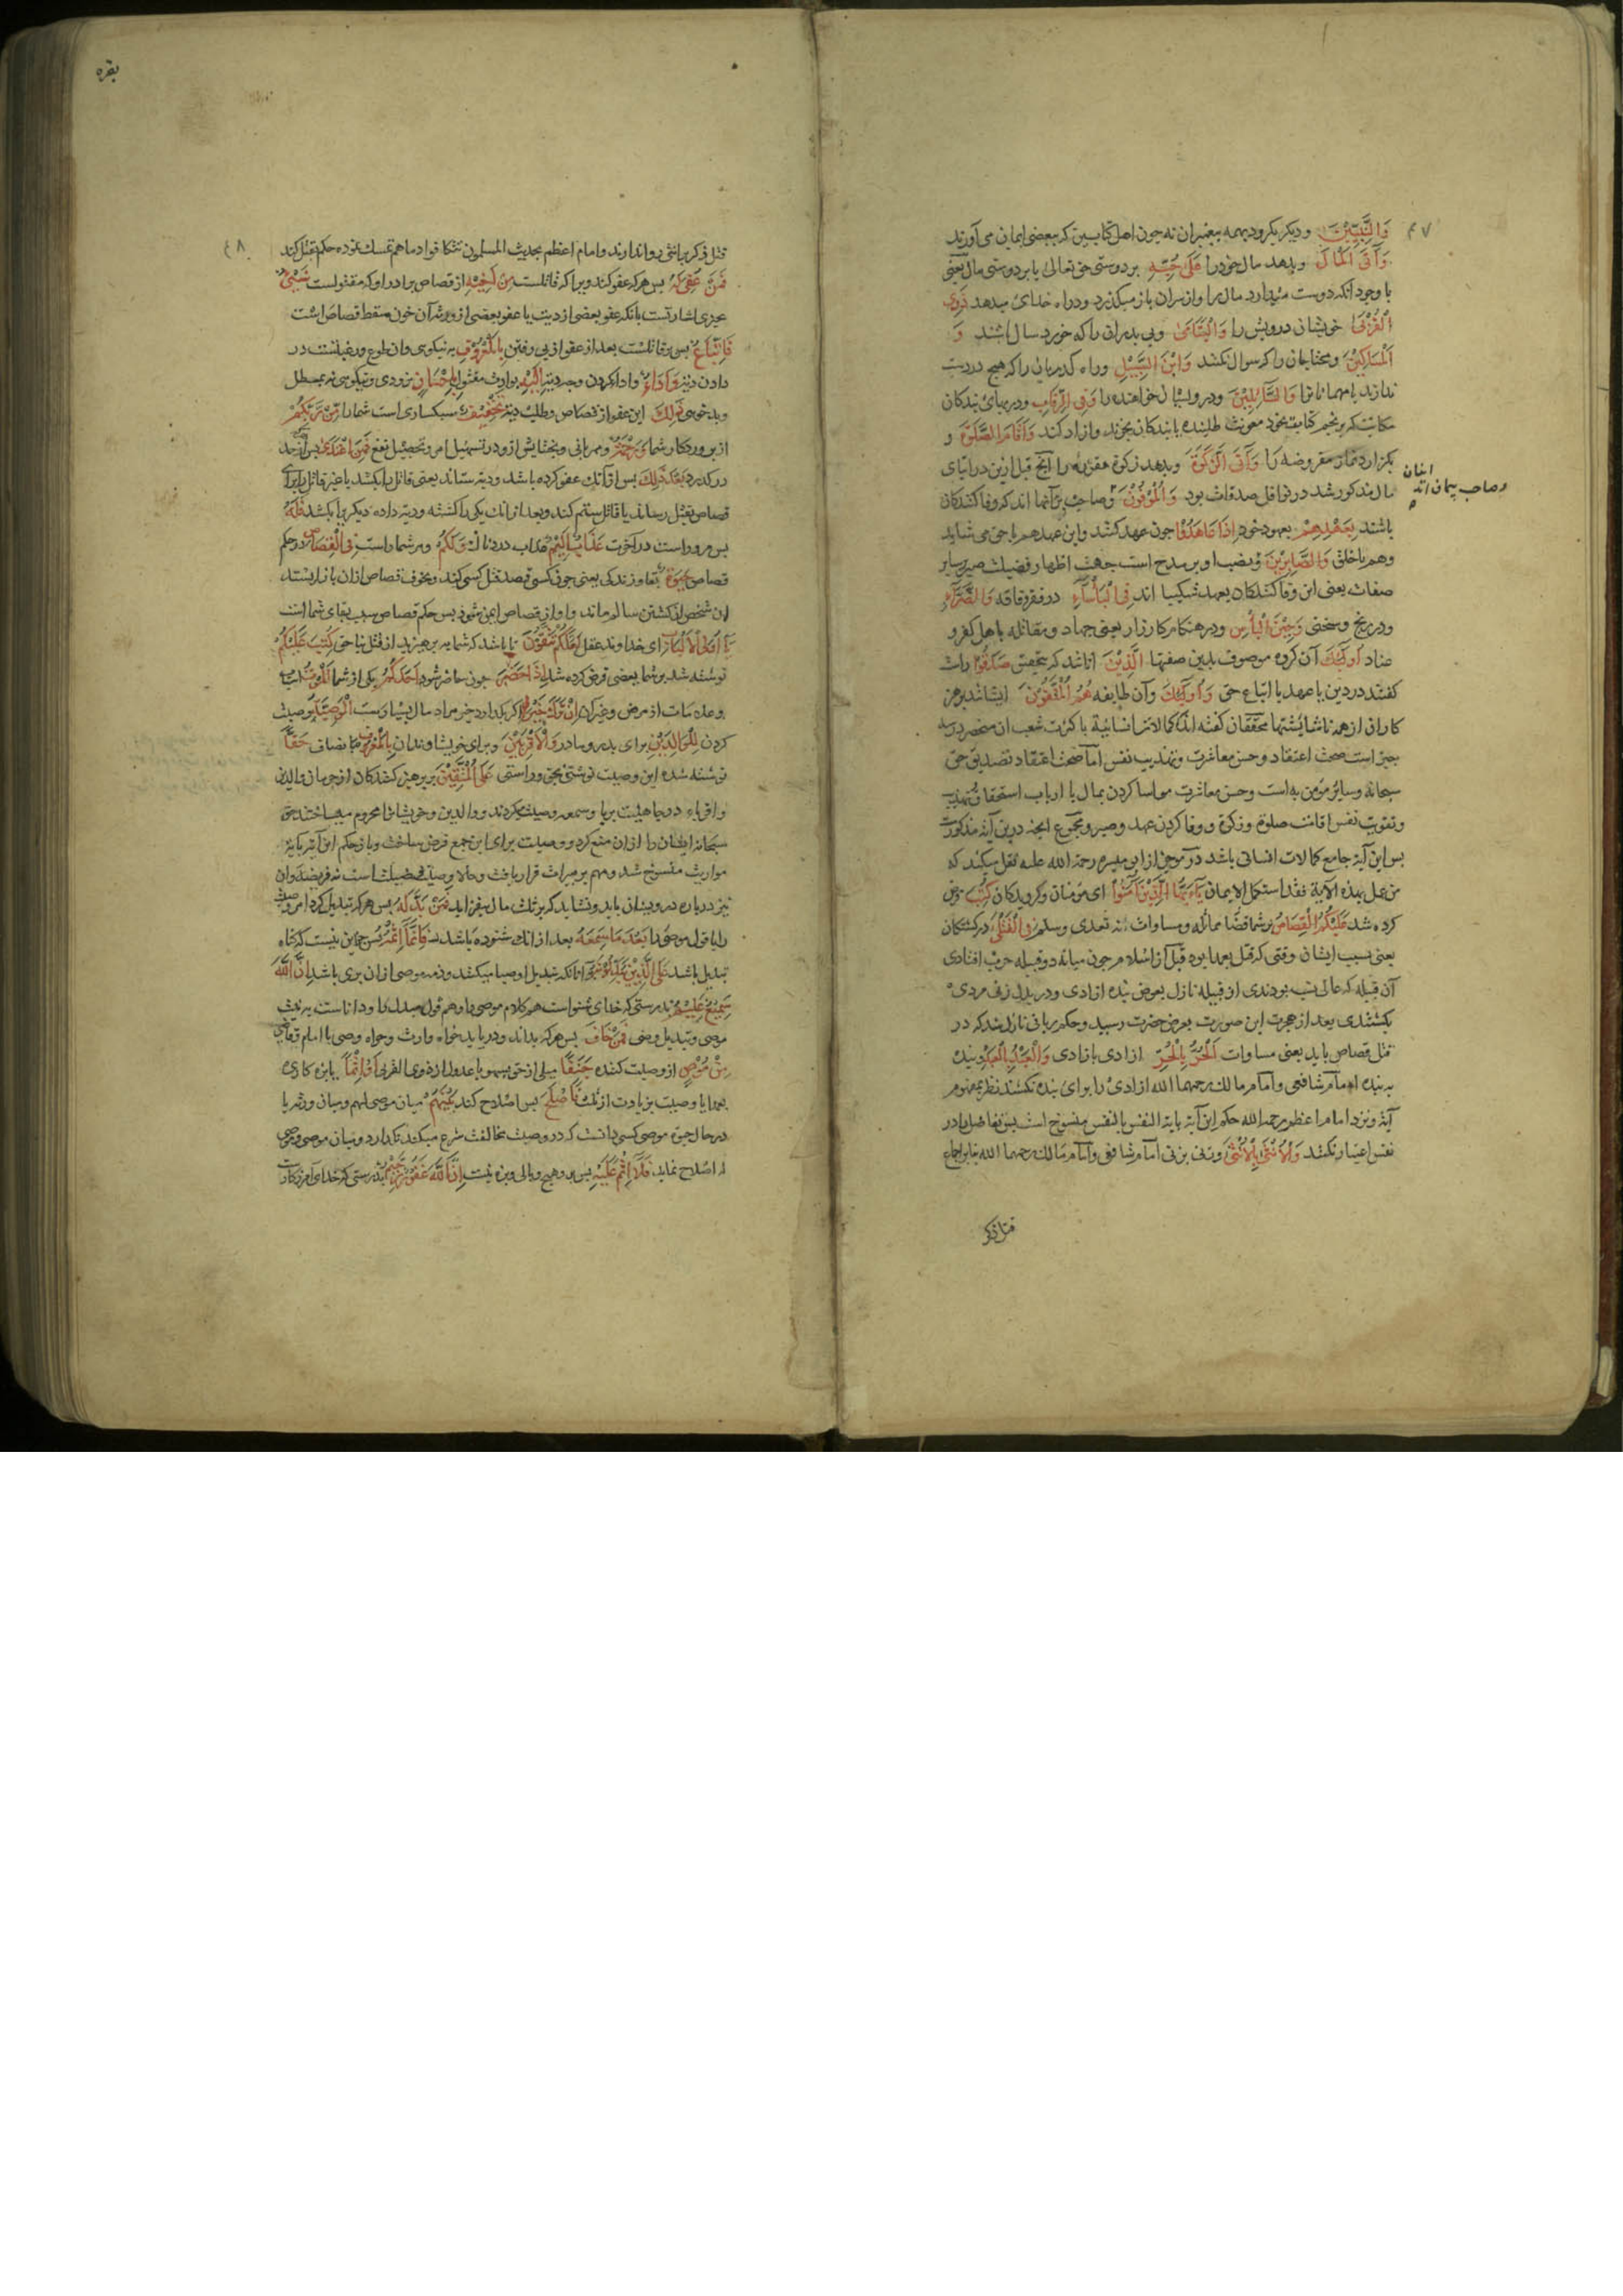 ۴۷
وَالنَّبِيّينَ و دیکر بکرود بهمه پیغمبران نه جون اهل کتابین که ببعضی ایمان می آورند
وَآتَى الْمَالَ و بدهد مال خود را عَلَى حُبِّهِ بر دوستی حق تعالی یا بر دوستی مال یعنی
با وجود آنکه دوست میدارد مال را و از سران باز میکذرد و در راه خدای میدهد ذَوِي
الْقُرْبَى خویشان درویش را وَالْيَتَامَى و بی بدران را که خورد سال باشند وَ
الْمَسَاكِينَ و محتاجان را که سوال نکنند وَابْنَ السَّبِيلِ و راه کدریانی را که هیج در دست
ندارند یا مهمانانرا وَالسَّائِلِينَ و درویشان خواهنده را وَفِي الرِّقَابِ و در بهای بندکان
مکاتب که بر نجم کتابت خود معونت طلبند یا بندکان بخرند و ازاد کند وَأَقَامَ الصَّلَوةَ و
بکزارد نماز مفروضه را وَآتَى الزَّكَوةَ و بدهد زکوة مفروضه را آنج قبل ازین در ایتای
مال مذکور شد در نوافل صدقات بود وَالْمُوفُونَ و صاحب بر آنها اند که وفا کنندکان
ایشان
و صاحب پیمان اند
باشند بِعَهْدِهِمْ بعهود خود إِذَا عَاهَدُوا جون عهد کنند و این عهد هم با حق می شاید
و هم با خلق وَالصَّابِرِينَ و نصب او بر مدح است بجهت اظهار فضیلت صبر بر سایر
صفات یعنی این وفا کنندکان بعهد شکیبا اند فِي الْبَأْسَاءِ در فقر و فاقه وَالضَّرَّاءِ
و در رنج و سختی وَحِينَ الْبَأْسِ و در هنکام کارزار یعنی جهاد و مقاتله با هل کفر و
عناد أُولَئِكَ آن کروه موصوف بدین صفتها الَّذِينَ انانند که بتحقیق صَدَقُوا راست
کفتند در دین یا عهد یا اتباع حق وَأُولَئِكَ و آن طایفه هُمُ الْمُتَّقُونَ ایشانند برهیز
کاران از همه ناشایستها محققان کفته اند کمالات انسانیة با کثرت شعب ان منحصر در سه
جیز است صحت اعتقاد و حسن معاشرت و تهذیب نفس اما صحت اعتقاد تصدیق حق
سبحانه و سایر مؤمن به است و حسن معاشرت مواسا کردن بمال با ارباب استحقاق و تهذیب
و تقویت نفس اقامت صلوة و زکوة و وفا کردن عهد و صبر و مجموع اینجه درین آیه مذکورست
بس این آیة جامع کمالات انسانی باشد در موجز از ابن میسره رحمة الله علیه نقل میکند که
من عمل بهذه الآیة فقد استکمل الایمان يَا أَيُّهَا الَّذِينَ آمَنُوا ای مؤمنان و کرویدکان كُتِبَ فرض
کرده شد عَلَيْكُمُ الْقِصَاصُ بر شما قصاص مماثله و مساوات نه تعدی و ستم فِي الْقَتْلَى در کشتکان
یعنی بسبب ایشان وقتی که قتل بعمد بود قبل از اسلام جون میانه دو قبیله حرب افتادی
آن قبیله که عالی نسب بودندی از قبیله نازل بعوض بنده ازادی و در بدل زنی مردی
بکشتندی بعد از هجرت این صورت بعرض حضرت رسید و حکم ربانی نازل شد که در
قتل قصاص باید یعنی مساوات الْحُرُّ بِالْحُرِّ ازادی بازادی وَالْعَبْدُ بِالْعَبْدِ و بنده
به بنده امام شافعی و امام مالک رحمهما الله ازادی را برای بنده نکشند نظر بمفهوم
آیة و نزد امام اعظم رحمه الله حکم این آیة بایة النفس بالنفس منسوخ است بس تفاضل را در
نفس اعتبار نکنند وَالْأُنْثَى بِالْأُنْثَى و زنی بزنی امام شافعی و امام مالک رحمهما الله بنابر اجماع
قتل ذکر
بقره
۴۸
قتل ذکر بانثی روا ندارند و امام اعظم بحدیث المسلمون تتکافوا دماهم تمسک نموده حکم بقتل کند
فَمَنْ عُفِيَ لَهُ بس هر که عفو کند ویرا که قاتلست مِنْ أَخِيهِ از قصاص برادر او که مقتولست شَيْءٌ
جیزی اشارتست بانکه عفو بعضی از دیت یا عفو بعضی از ورثه آن خون مسقط قصاص است
فَاتِّبَاعٌ بس بر قاتلست بعد از عفو از بی رفتن بِالْمَعْرُوفِ به نیکویی و ان طوع و رغبتست در
دادن دیة وَأَدَاءٌ و ادا کردن وجه دیة إِلَيْهِ بوارث مقتول بِإِحْسَانٍ بزودی و نیکویی نه بمطل
و بدخویی ذَلِكَ این عفو از قصاص و طلب دیة تَخْفِيفٌ سبکساری است شما را مِنْ رَبِّكُمْ
از بروردکار شما وَرَحْمَةٌ و مهربانی و بخشایش ازو در تسهیل امر و تحصیل نفع فَمَنِ اعْتَدَى بس هر که از حد
درکذرد بَعْدَ ذَلِكَ بس از آنک عفو کرده باشد و دیة ستاند یعنی قاتل را بکشد یا غیر قاتل را برای
قصاص بقتل رساند یا قاتل ستم کند و بعد از آنک یکی را کشته و دیة داده دیکریرا بکشد فَلَهُ
بس مر وراست در آخرت عَذَابٌ أَلِيمٌ عذاب دردناک وَلَكُمْ و مر شما راست فِي الْقِصَاصِ در حکم
قصاص حَيَوةٌ بقا و زندکی یعنی جون کسی قصد قتل کسی کند و بخوف قصاص ازان باز ایستد
ان شخص از کشتن سالم ماند و او از قصاص ایمن شود بس حکم قصاص سبب بقای شما است
يَا أُولِي الْأَلْبَابِ ای خداوند عقل لَعَلَّكُمْ تَتَّقُونَ تا باشد که شما به برهیزید از قتل ناحق كُتِبَ عَلَيْكُمْ
نوشته شد بر شما یعنی فرض کرده شد إِذَا حَضَرَ جون حاضر شود أَحَدَكُمُ یکی از شما الْمَوْتُ اسباب
و علامات از مرض و غیر ان إِنْ تَرَكَ خَيْرًا اکر بکدارد خیر مراد مال بسیار ست الْوَصِيَّةُ وصیت
کردن لِلْوَالِدَيْنِ برای بدر و مادر وَالْأَقْرَبِينَ و برای خویشاوندان بِالْمَعْرُوفِ بانصاف حَقًّا
نوشته شده این وصیت نوشتنی بحق و راستی عَلَى الْمُتَّقِينَ بر برهیز کنندکان از حرمان والدین
و اقرباء در جاهلیت بریا و سمعه وصیت میکردند و والدین و خویشانرا محروم میساختند حق
سبحانه ایشان را ازان منع کرد و وصیت برای این جمع فرض ساخت و باز حکم این آیة بایة
مواریث منسوخ شد و مهم بر میراث قرار یافت و حالا وصیت فضیلت است نه فریضه و ان
نیز در باره درویشان باید و نشاید که بر ثلث مال بیفزاید فَمَنْ بَدَّلَهُ بس هر که تبدیل کرد امر وصیت
را یا قول موصی را بَعْدَ مَا سَمِعَهُ بعد از انک شنوده باشد فَإِنَّمَا إِثْمُهُ بس جز این نیست که کناه
تبدیل باشد عَلَى الَّذِينَ يُبَدِّلُونَهُ بر انانکه تبدیل اوصیا میکنند و ذمه موصی ازان بری باشد إِنَّ اللَّهَ
سَمِيعٌ عَلِيمٌ بدرستی که خدای شنواست هم کلام موصی را و هم قول مبدل را و داناست به نیت
موصی و تبدیل وصی فَمَنْ خَافَ بس هر که بداند و دریابد خواه وارث و خواه وصی یا امام و قاضی
مِنْ مُوصٍ از وصیت کننده جَنَفًا میلی از حق بسهو یا عدول از ذوی القربی أَوْ إِثْمًا یا بزه کاری
بعمد یا وصیت بزیادت از ثلث فَأَصْلَحَ بس اصلاح کند بَيْنَهُمْ میان موصی لهم و میان ورثه یا
در حال حیوة موصی کسی دانست که در وصیت مخالفت شرع میکند نکذارد و میان موصی و موصی
له اصلاح نماید فَلَا إِثْمَ عَلَيْهِ بس برو هیج وبالی و بزه نیست إِنَّ اللَّهَ غَفُورٌ رَحِيمٌ بدرستی که خدای آمرزکارست